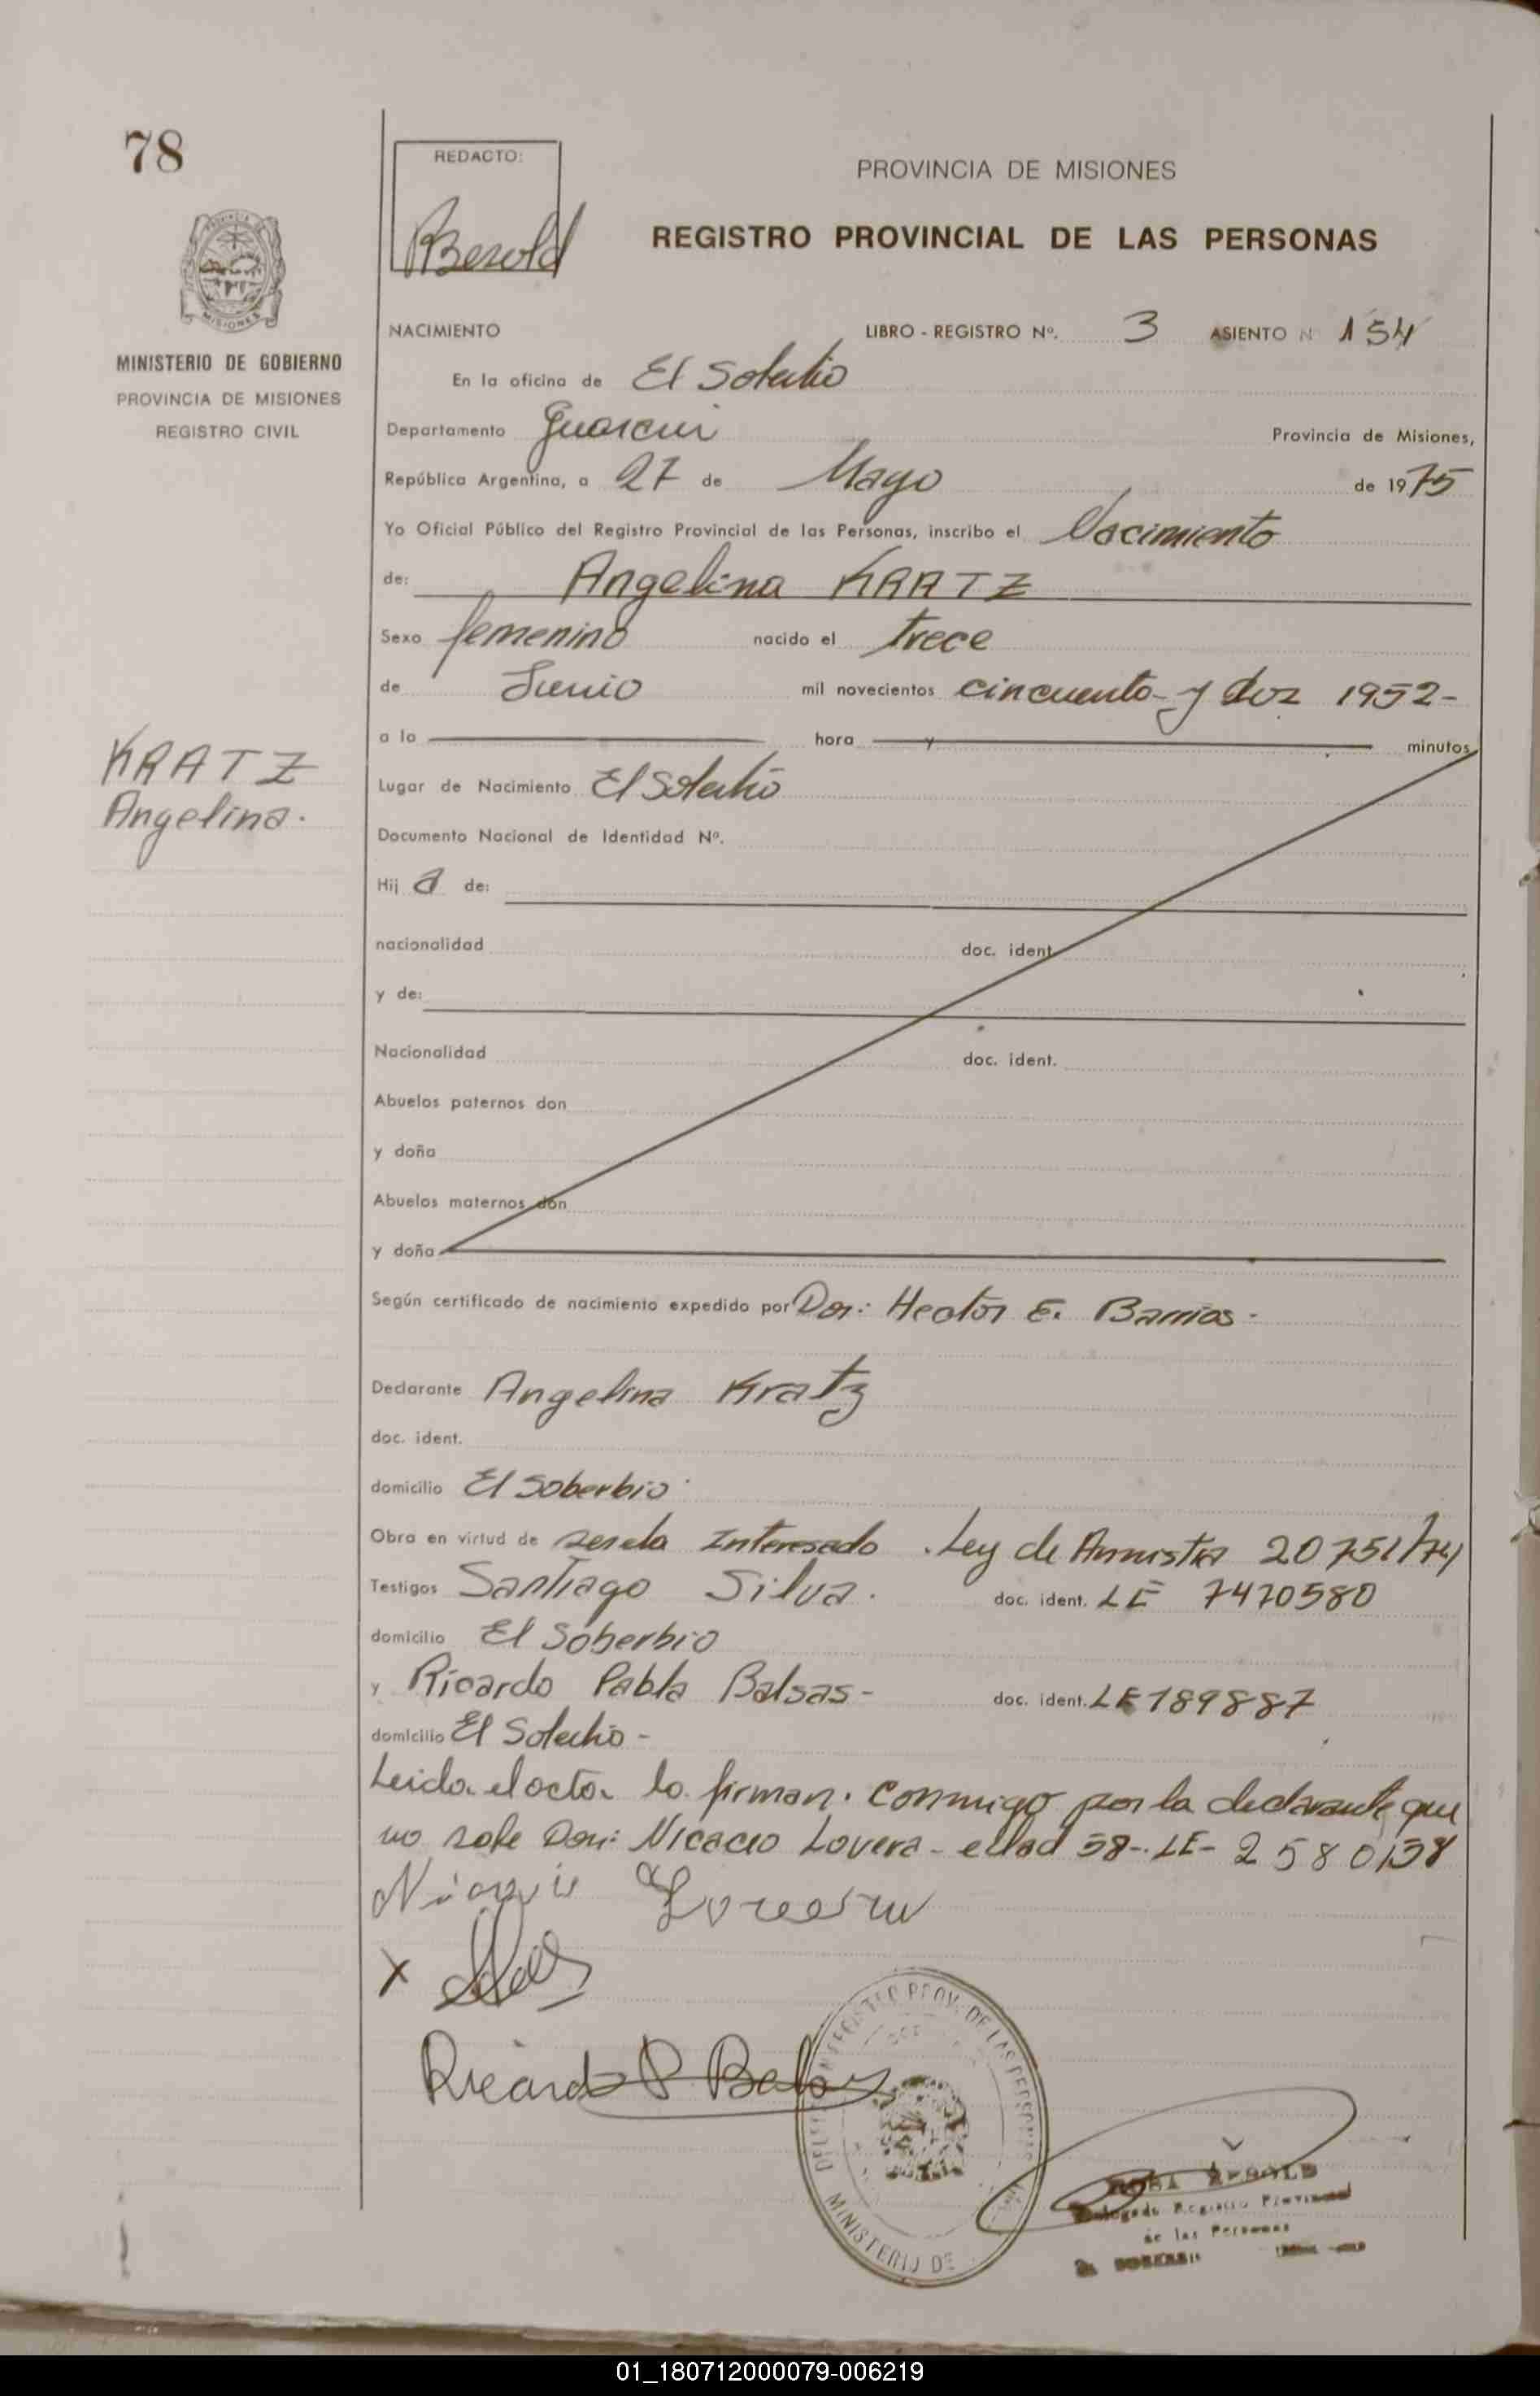 78
REDACTO:
Berold
PROVINCIA DE MISIONES
REGISTRO PROVINCIAL DE LAS PERSONAS
MISIONES
MINISTERIO DE GOBIERNO
PROVINCIA DE MISIONES
REGISTRO CIVIL
NACIMIENTO
LIBRO - REGISTRO Nº. 3 ASIENTO N 154
En la oficina de El Soberbio
Departamento Guarani Provincia de Misiones,
República Argentina, a 27 de Mayo de 1975
Yo Oficial Público del Registro Provincial de las Personas, inscribo el Nacimiento
de: Angelina KRATZ
Sexo femenino nacido el trece
de Junio mil novecientos cincuenta y dos 1952-
a la hora y minutos
KRATZ
Angelina.
Lugar de Nacimiento El Soberbio
Documento Nacional de Identidad Nº.
Hij a de:
nacionalidad doc. ident.
y de:
Nacionalidad doc. ident.
Abuelos paternos don
y doña
Abuelos maternos don
y doña
Según certificado de nacimiento expedido por Dor: Hector E. Barrios-
Declarante Angelina Kratz
doc. ident.
domicilio El Soberbio
Obra en virtud de ser la Interesado . Ley de Amnistia 20751/74
Testigos Santiago Silva. doc. ident. LE 7470580
domicilio El Soberbio
y Ricardo Pabla Balsas- doc. ident. LE 189887
domicilio El Soberbio-
Leida el acta la firman. conmigo por la declarante que
no sabe Don: Nicacio Lovera- edad 58-. LE- 2580138
Ricardo P Balsas
REGISTRO PROV. DE LAS PERSONAS
MINISTERIO DE
ROSA BEROLD
Delegada Registro Provincial
de las Personas
EL SOBERBIO
01_180712000079-006219